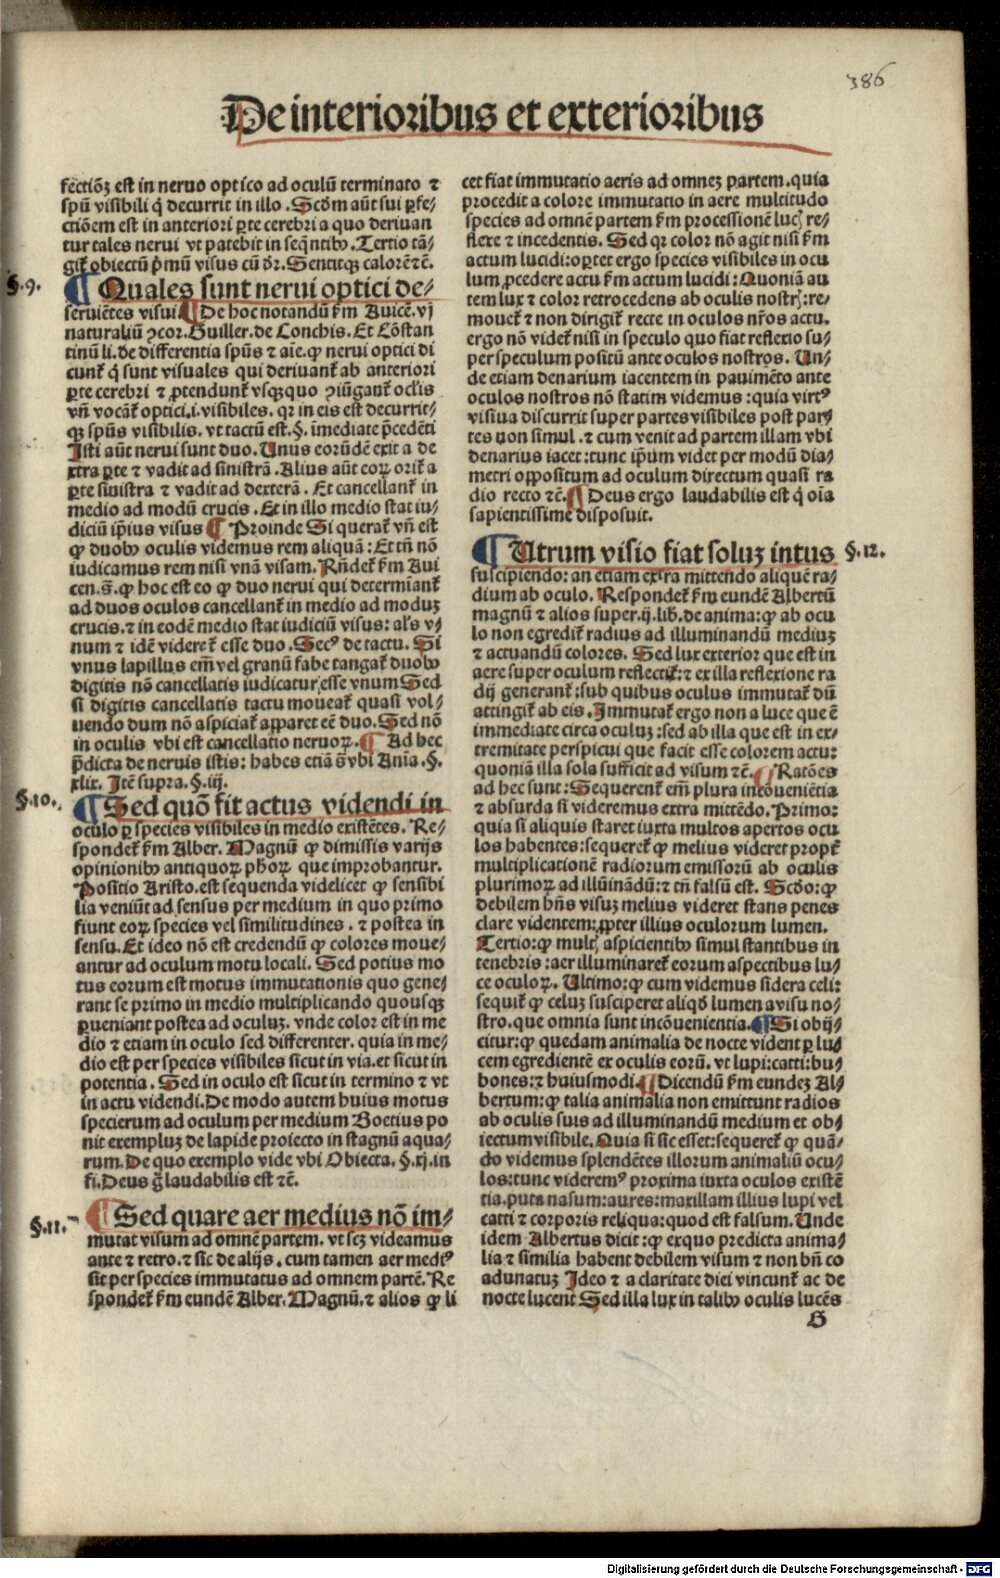 386
De interioribus et exterioribus
fectiōꝫ est in neruo optico ad oculū terminato ⁊
spū visibili q̇ decurrit in illo. Scd̄m aūt sui ꝑfe-
ctiōem est in anteriori ꝑte cerebri a quo deriuan
tur tales nerui vt patebit in seq̄ntibꝰ. Tertio tā-
giṫ obiectū p̄mū visus cū dr̄. Sentitqꝫ calorē ⁊c̄.
§.9.
¶ Quales sunt nerui optici de-
seruiētes visui ¶ De hoc notandū ẜm Auicē. vj
naturaliū ꝯcor. Guiller. de Conchis. Et Cōstan
tinū li. de differentia spūs ⁊ aīe. ꝙ nerui optici di
cunṫ q̇ sunt visuales qui deriuanṫ ab anteriori
ꝑte cerebri ⁊ ꝓtendunṫ vsqꝫquo ꝯiūganṫ ocl̄is
vn̄ vocāṫ optici.i.visibiles. qr in eis est decurrit-
qꝫ spūs visibilis. vt tactū est.§. īmediate p̄cedēti
Isti aūt nerui sunt duo. Unus eorūdē exit a de
xtra ꝑte ⁊ vadit ad sinistrā. Alius aūt eoꝝ oriṫ a
ꝑte sinistra ⁊ vadit ad dexterā. Et cancellanṫ in
medio ad modū crucis. Et in illo medio stat iu-
diciū ip̄ius visus ¶ Proinde Si queraṫ vn̄ est
ꝙ duobꝰ oculis videmus rem aliquā: Et tn̄ nō
iudicamus rem nisi vnā visam. Rn̄deṫ ẜm Aui
cen.s̄. ꝙ hoc est eo ꝙ duo nerui qui determīanṫ
ad duos oculos cancellanṫ in medio ad moduꝫ
crucis. ⁊ in eodē medio stat iudiciū visus: al̄s v-
num ⁊ idē videreṫ esse duo. Secꝰ de tactu. Si
vnus lapillus em̄ vel granū fabe tangaṫ duobꝰ
digitis nō cancellatis iudicatur esse vnum Sed
si digitis cancellatis tactu moueaṫ quasi vol-
uendo dum nō aspiciaṫ apparet eē duo. Sed nō
in oculis vbi est cancellatio neruoꝝ. ¶ Ad hec
p̄dicta de neruis istis: habes etiā s̄ vbi Anīa.§.
xlix. Itē supra.§.iij.
§.10.
¶ Sed quō fit actus videndi in
oculo ꝑ species visibiles in medio existētes. Re-
spondeṫ ẜm Alber. Magnū ꝙ dimissis varijs
opinionibꝰ antiquoꝝ phoꝝ que improbantur.
Positio Aristo. est sequenda videlicet ꝙ sensibi
lia veniūt ad sensus per medium in quo primo
fiunt eoꝝ species vel similitudines. ⁊ postea in
sensu. Et ideo nō est credendū ꝙ colores moue-
antur ad oculum motu locali. Sed potius mo
tus eorum est motus immutationis quo gene-
rant se primo in medio multiplicando quousqꝫ
ꝑueniant postea ad oculuꝫ. vnde color est in me
dio ⁊ etiam in oculo sed differenter. quia in me-
dio est per species visibiles sicut in via. et sicut in
potentia. Sed in oculo est sicut in termino ⁊ vt
in actu videndi. De modo autem huius motus
specierum ad oculum per medium Boetius po
nit exempluꝫ de lapide proiecto in stagnū aqua-
rum. De quo exemplo vide vbi Obiecta.§.xj.in
fi. Deus g̊ laudabilis est ⁊c̄.
§.11.
¶ Sed quare aer medius nō im-
mutat visum ad omnē partem. vt scꝫ videamus
ante ⁊ retro. ⁊ sic de alijs. cum tamen aer mediꝰ
sit per species immutatus ad omnem partē. Re
spondeṫ ẜm eundē Alber. Magnū. ⁊ alios ꝙ li
cet fiat immutatio aeris ad omneꝫ partem. quia
procedit a colore immutatio in aere multitudo
species ad omnē partem ẜm processionē lucꝭ re-
flexe ⁊ incedentis. Sed qr color nō agit nisi ẜm
actum lucidi: oꝑtet ergo species visibiles in ocu
lum ꝓcedere actu ẜm actum lucidi: Quoniā au
tem lux ⁊ color retrocedens ab oculis nostrꝭ: re-
moueṫ ⁊ non dirigiṫ recte in oculos nr̄os actu.
ergo nō videṫ nisi in speculo quo fiat reflexio su-
per speculum positū ante oculos nostros. Un-
de etiam denarium iacentem in pauimēto ante
oculos nostros nō statim videmus: quia virtꝰ
visiua discurrit super partes visibiles post par-
tes non simul. ⁊ cum venit ad partem illam vbi
denarius iacet: tunc ip̄um videt per modū dia-
metri oppositum ad oculum directum quasi ra
dio recto ⁊c̄. ¶ Deus ergo laudabilis est q̇ oīa
sapientissime disposuit.
¶ Utrum visio fiat soluꝫ intus
§.12.
suscipiendo: an etiam extra mittendo aliquē ra-
dium ab oculo. Respondeṫ ẜm eundē Albertū
magnū ⁊ alios super.ij.lib.de anima: ꝙ ab ocu
lo non egrediṫ radius ad illuminandū mediuꝫ
⁊ actuandū colores. Sed lux exterior que est in
aere super oculum reflectiṫ: ⁊ ex illa reflexione ra
dij generanṫ: sub quibus oculus immutaṫ dū
attingiṫ ab eis. Immutaṫ ergo non a luce que ē
immediate circa oculuꝫ: sed ab illa que est in ex-
tremitate perspicui que facit esse colorem actu:
quoniā illa sola sufficit ad visum ⁊c̄. ¶ Ratōes
ad hec sunt: Sequerenṫ em̄ plura incōuenientia
⁊ absurda si videremus extra mittēdo. Primo:
quia si aliquis staret iuxta multos apertos ocu
los habentes: sequereṫ ꝙ melius videret propṫ
multiplicationē radiorum emissorū ab oculis
plurimoꝝ ad illūinādū: ⁊ tn̄ falsū est. Scd̄o: ꝙ
debilem hn̄s visuꝫ melius videret stans penes
clare videntem: ꝓpter illius oculorum lumen.
Tertio: ꝙ multꝭ aspicientibꝰ simul stantibus in
tenebris: aer illuminareṫ eorum aspectibus lu-
ce oculoꝝ. Ultimo: ꝙ cum videmus sidera celi:
sequiṫ ꝙ celuꝫ susciperet aliqd̄ lumen a visu no-
stro. que omnia sunt incōuenientia. ¶ Si obij-
citur: ꝙ quedam animalia de nocte vident ꝑ lu-
cem egredientē ex oculis eorū. vt lupi: catti: bu-
bones: ⁊ huiusmodi. ¶ Dicendū ẜm eundeꝫ Al-
bertum: ꝙ talia animalia non emittunt radios
ab oculis suis ad illuminandū medium et ob-
iectum visibile. Quia si sic esset: sequereṫ ꝙ quā-
do videmus splendētes illorum animaliū ocu-
los: tunc videremꝰ proxima iuxta oculos existē
tia. puta nasum: aures: maxillam illius lupi vel
catti ⁊ corporis reliqua: quod est falsum. Unde
idem Albertus dicit: ꝙ exquo predicta anima-
lia ⁊ similia habent debilem visum ⁊ non bn̄ co
adunatuꝫ Ideo ⁊ a claritate diei vincunṫ ac de
nocte lucent Sed illa lux in talibꝰ oculis lucēs
G
Digitalisierung gefördert durch die Deutsche Forschungsgemeinschaft - DFG